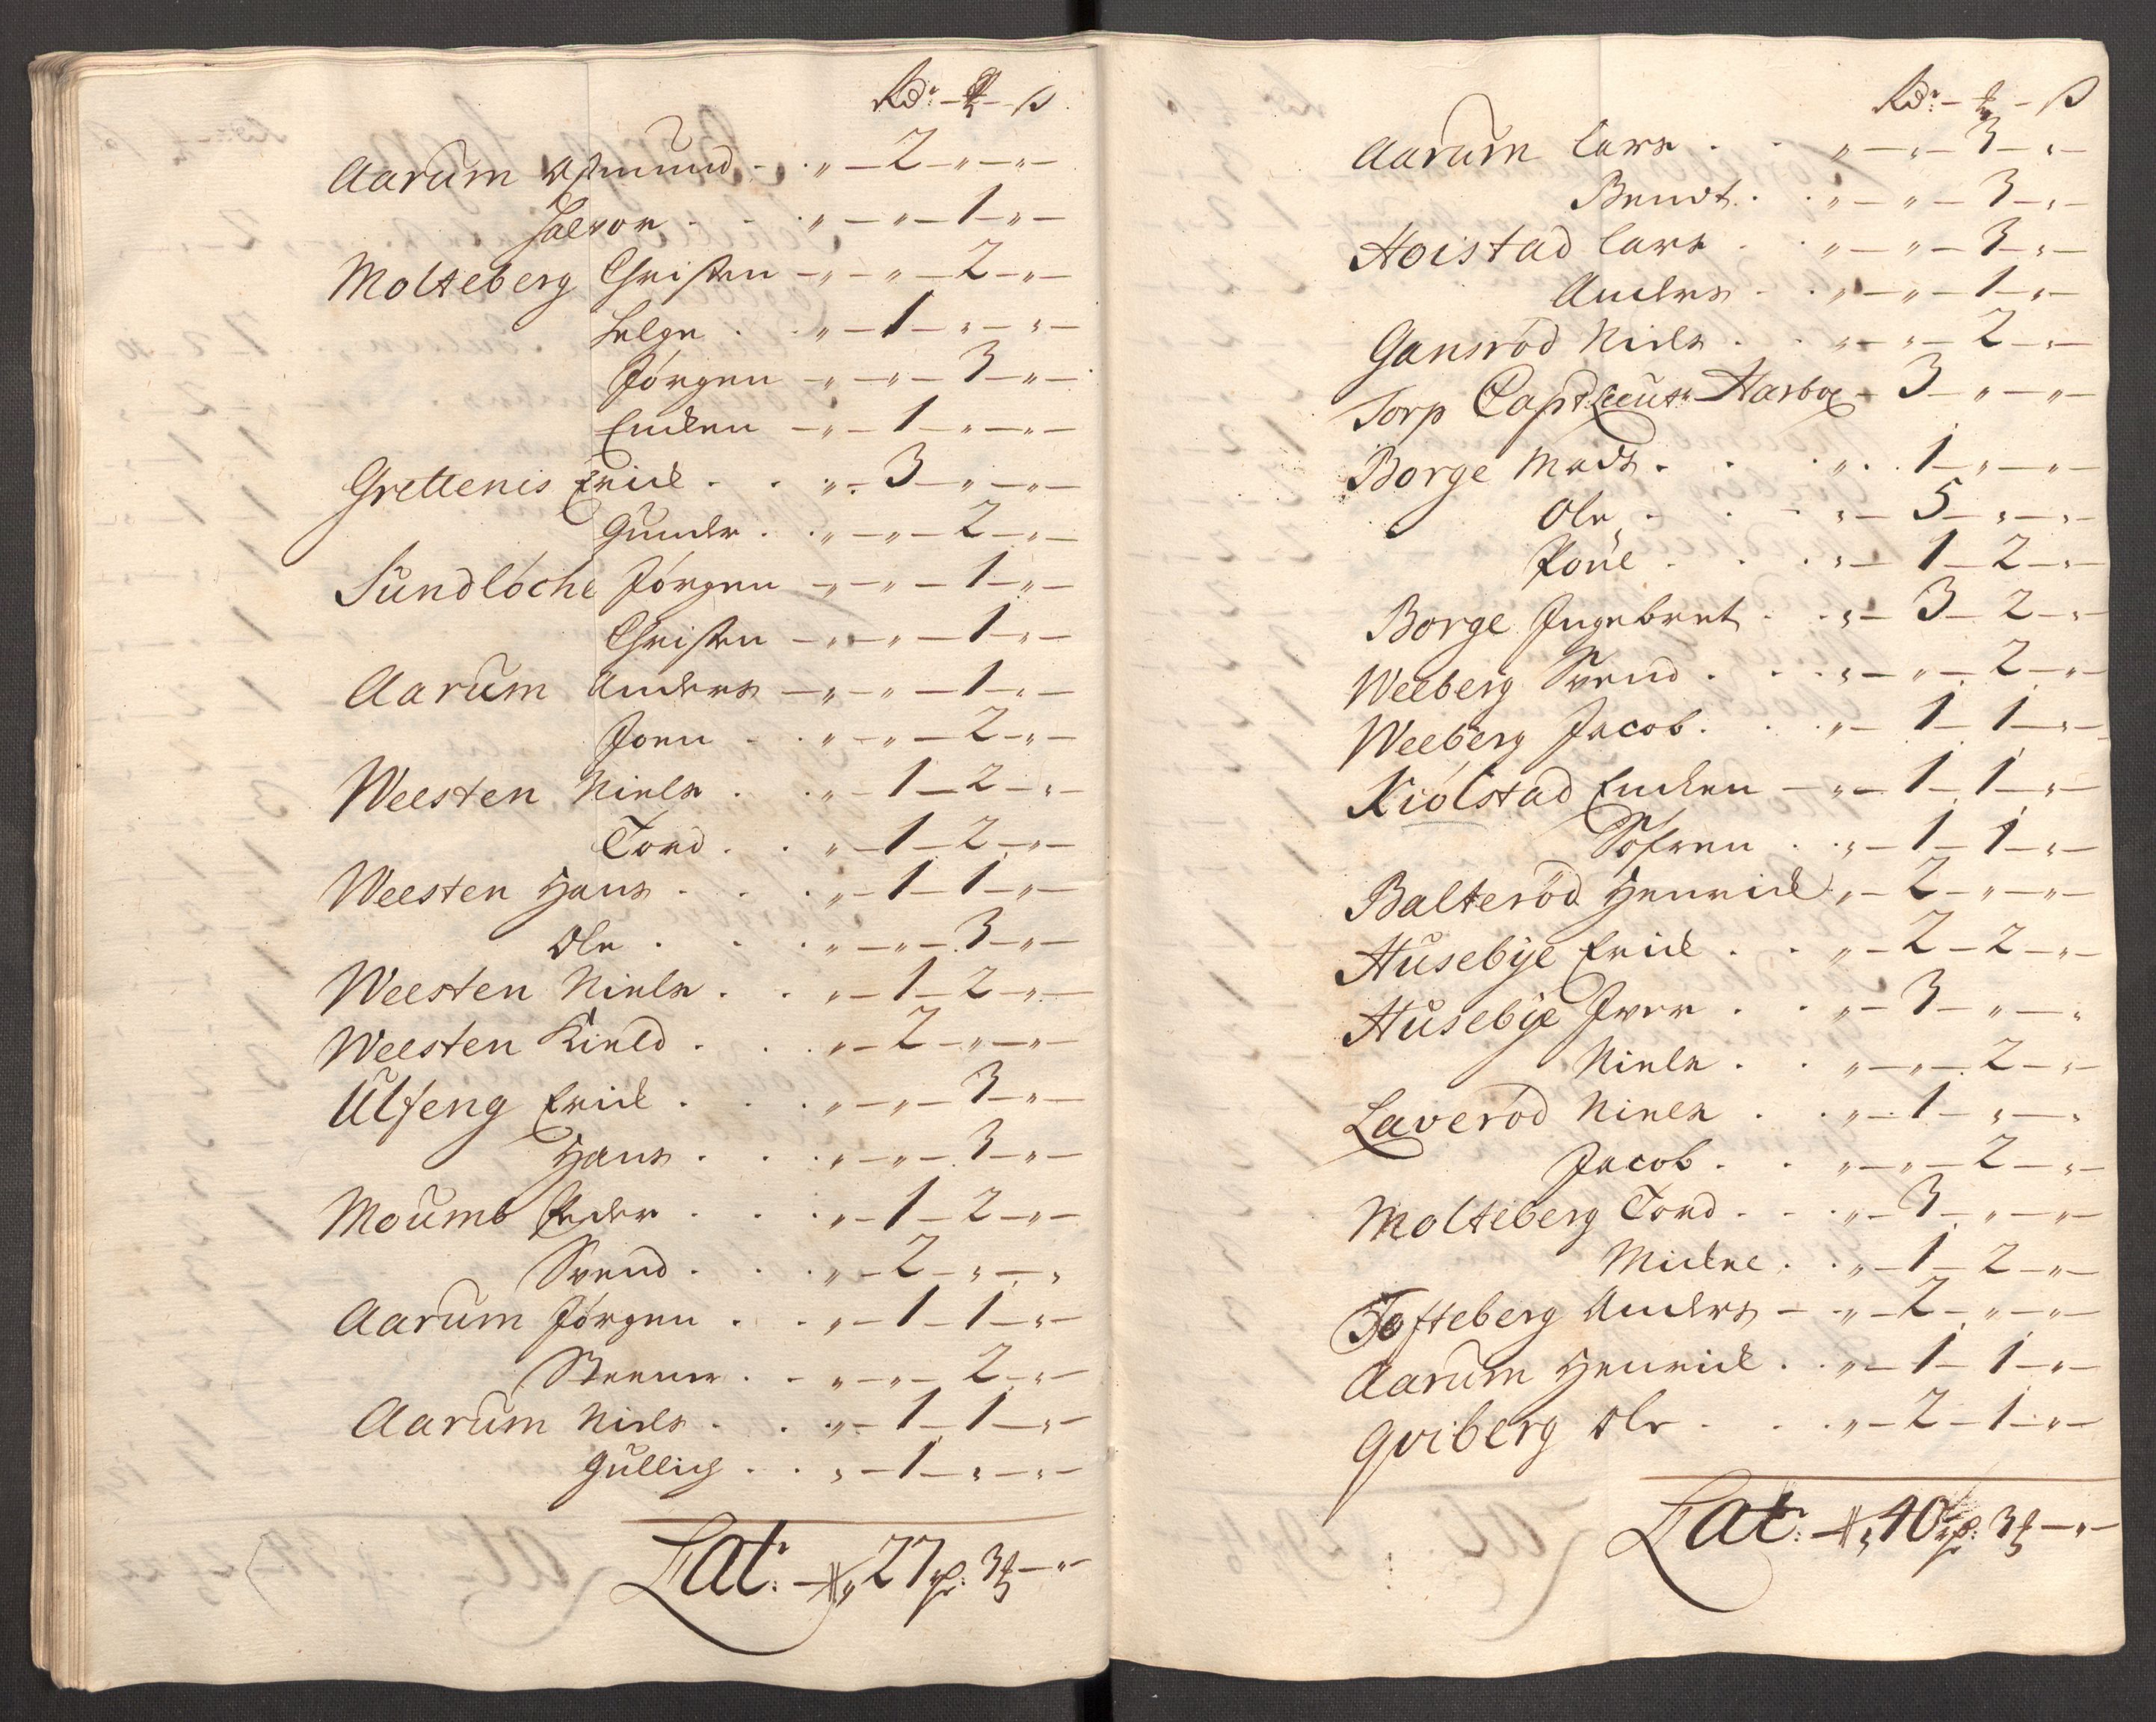 Rd: – ₰ – ß
Aarum Asmund - . „ – 2 – „ – „ –
Halvor . . . „ – „ – 1 – „ –
Molteberg Christen – „ – „ – 2 – „ –
Helge . . „ – 1 – „ – „ –
Jörgen – „ – „ – 3 – „ –
Encken – „ – 1 – „ – „ –
Grettenis Erick . . „ – 3 – „ – „ –
Gunder . . „ – „ – 2 – „ –
Sundlöche Jörgen – „ – „ – 1 – „ –
Christen – „ – „ – 1 – „ –
Aarum Anders – „ – „ – 1 – „ –
Joen . . „ – „ – 2 – „ –
Weesten Niels . . „ – 1 – 2 – „ –
Tord . . „ – 1 – 2 – „ –
Weesten Hans . . . „ – 1 – 1 – „ –
Ole . . . „ – „ – 3 – „ –
Weesten Niels . . „ – 1 – 2 – „ –
Weesten Kield . . . „ – 2 – „ – „ –
Ulfeng Erick . . . „ – „ – 3 – „ –
Hans . . . „ – „ – 3 – „ –
Moumb Peder . . . „ – 1 – 2 – „ –
Svend . . . „ – 2 – „ – „
Aarum Jörgen . . „ – 1 – 1 – „ –
Steener . . „ – „ – 2 – „ –
Aarum Niels . . . „ – 1 – 1 – „ –
Gullich . . „ – 1 – „ – „ –
Lat: – „ 27 3 – „ –
Rd: – ₰ – ß
Aarum Lars . . „ – „ – 3 – „ –
Bendt . . „ – „ – 3 – „ –
Hoistad Lars . . „ – „ – 3 – „ –
Anders . . „ – „ – 1 – „ –
Gansröd Niels . . „ – „ – 2 – „ –
Torp Capt: Leut: Harboe – 3 – „ – „ –
Borge Mads . . . „ . 1 – „ – „ –
Ole . . . „ – 5 – „ – „ –
Poüel . . . „ – 1 – 2 – „ –
Borge Ingebret . . „ – 3 – 2 – „ –
Weeberg Svend . . . „ – „ – 2 – „ –
Weeberg Jacob . . . „ – 1 – 1 – „ –
Kiölstad Encken – „ – 1 – 1 – „ –
Söfren . . „ – 1 – 1 – „ –
Balteröd Henrick „ – 2 – „ – „ –
Husebÿe Erick . . „ – 2 – 2 – „ –
Husebÿe Iver . . „ – 3 – „ – „
Niels . . „ – „ – 2 – „ –
Laveröd Niels . . „ – 1 – „ – „
Jacob . . „ – „ – 2 – „ –
Molteberg Tord . . . „ – 3 – „ – „ –
Mickel . . „ – 1 – 2 – „ –
Tofteberg Anders – . „ – 2 – „ – „ –
Aarum Henrick . . „ – 1 – 1 – „ –
Qviberg Ole . . . „ – 2 – 1 – „ –
Lat: – „ 40 3 – „ –